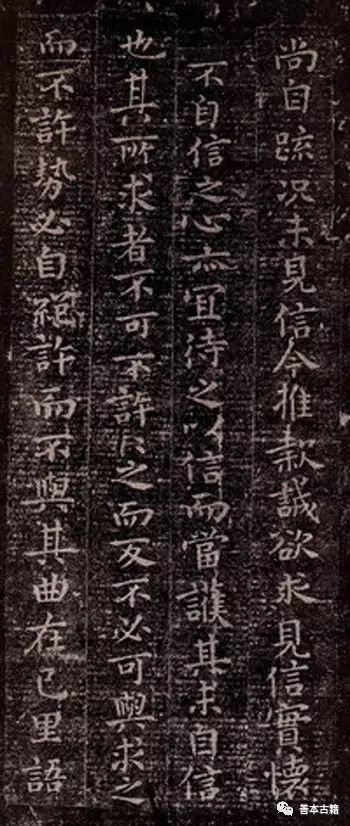 尚自踈况未見信今推款誠欲求見信實懷
不自信之心亦宜待之以信而當護其未自信
也其所求者不可不許〻之而反不必可與求之
而不許勢必自絕許而不與其曲在己里語
善本古籍